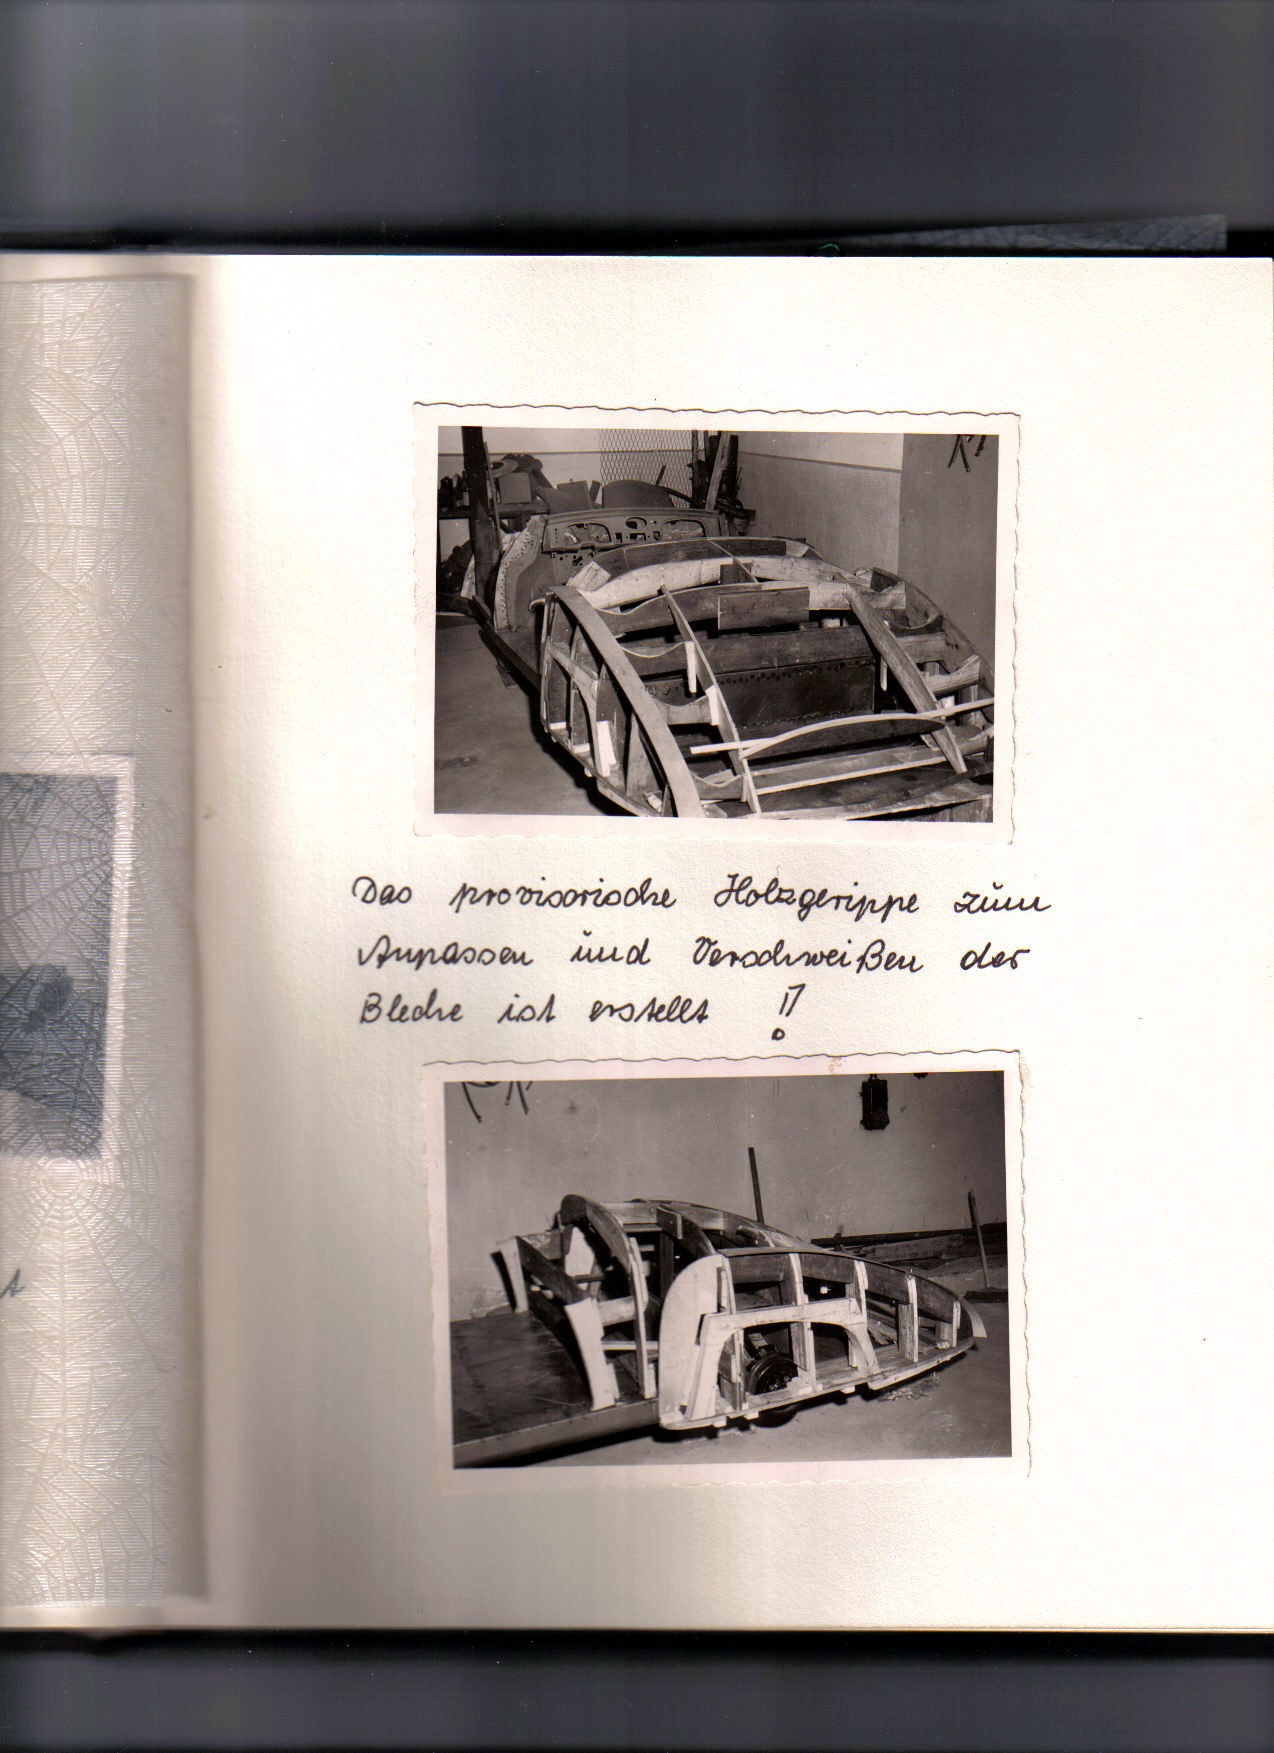 Das provisorische Holzgerippe zum
Anpassen und Verschweißen der
Bleche ist erstellt !